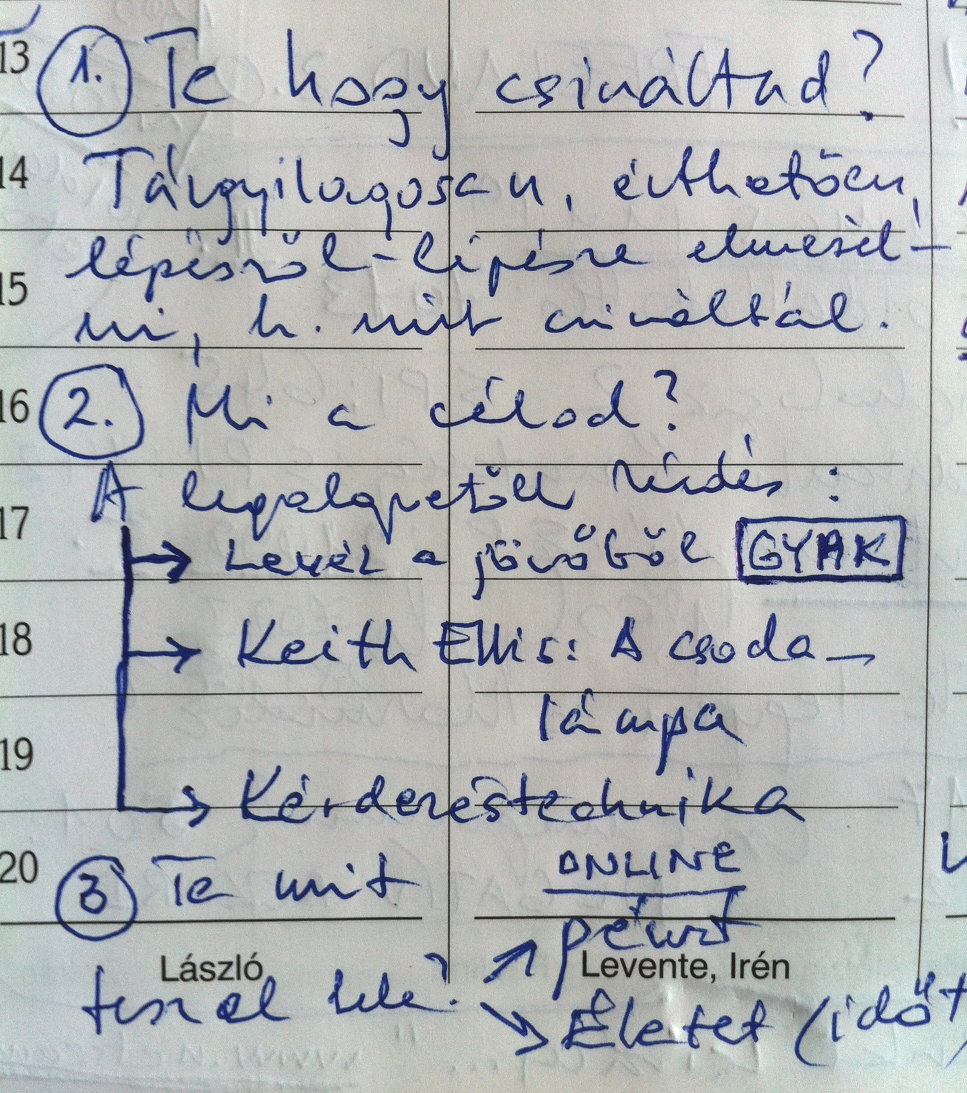 13 1. Te hogy csináltad?
14 Tárgyilagosan, érthetően,
lépésről-lépésre elmesél-
15 ni, h. mit csináltál.
16 2. Mi a célod?
A legalapvetőbb kérdés:
17 → Levél a jövőből GYAK
18 → Keith Ellis: A csoda-
lámpa
19 → Kérdezéstechnika
20 3 Te mit ONLINE
pénzt
László Levente, Irén
teszel bele? → Életet (időt